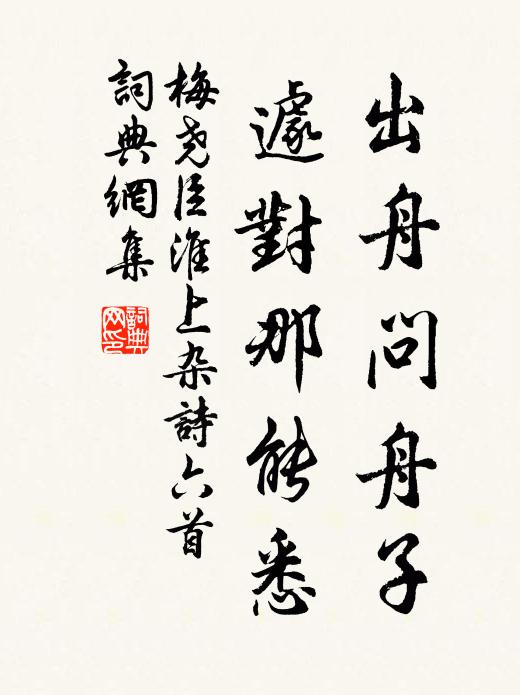 出舟問舟子
遽對那能悉
梅尧臣淮上杂詩六首
詞典網集
詞典网印